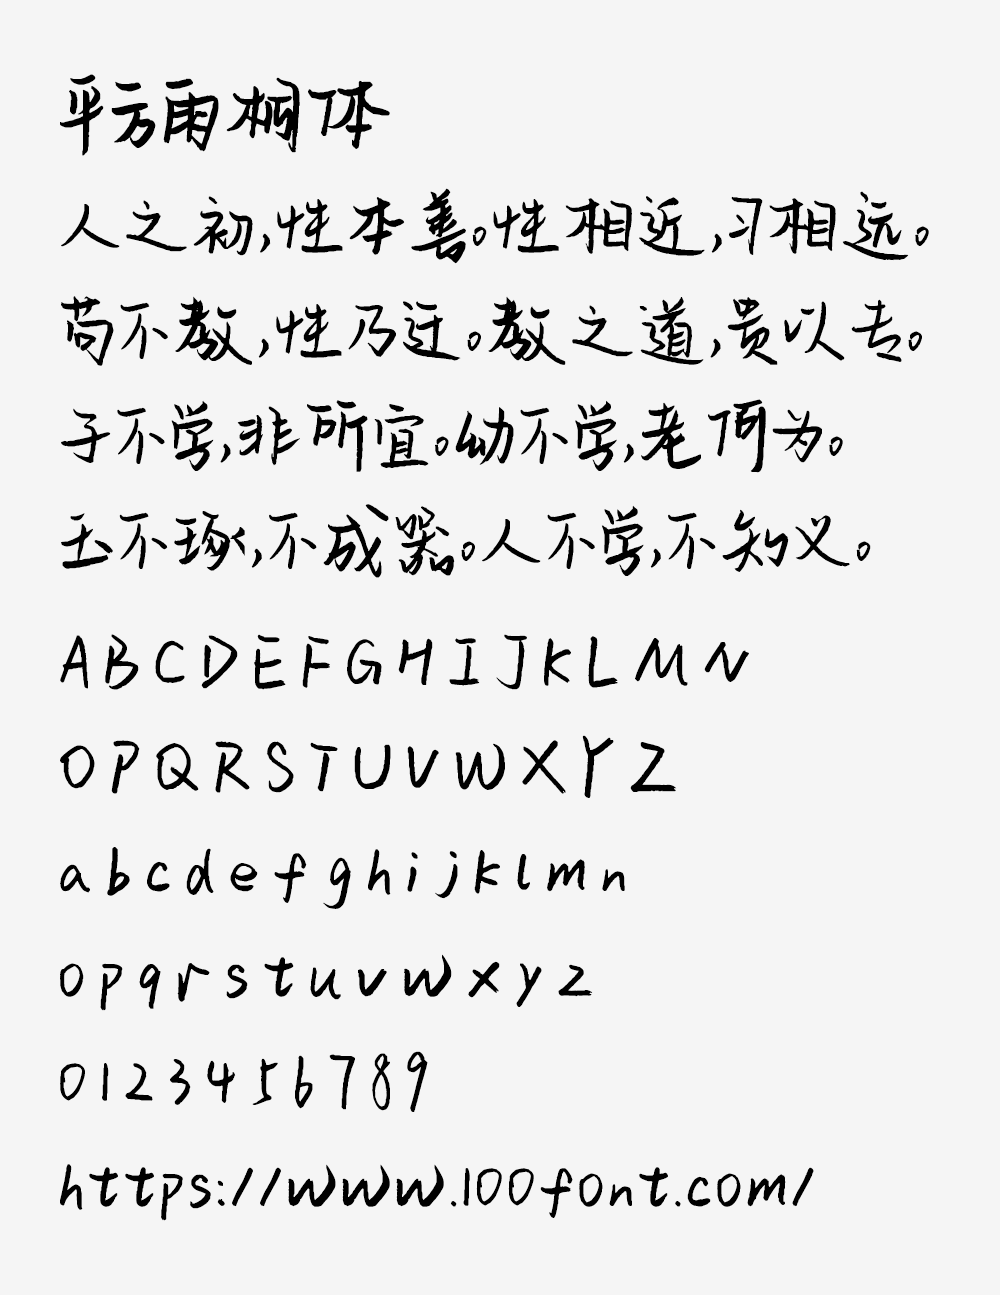 平方雨桐体
人之初,性本善。性相近,习相远。
苟不教,性乃迁。教之道,贵以专。
子不学,非所宜。幼不学,老何为。
玉不琢,不成器。人不学,不知义。
ABCDEFGHIJKLMN
OPQRSTUVWXYZ
abcdefghijklmn
opqrstuvwxyz
0123456789
https://www.100font.com/